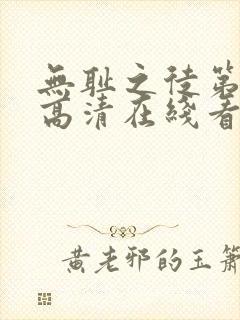 無耻之徒第
高清在綫看
黄老邪的玉箫